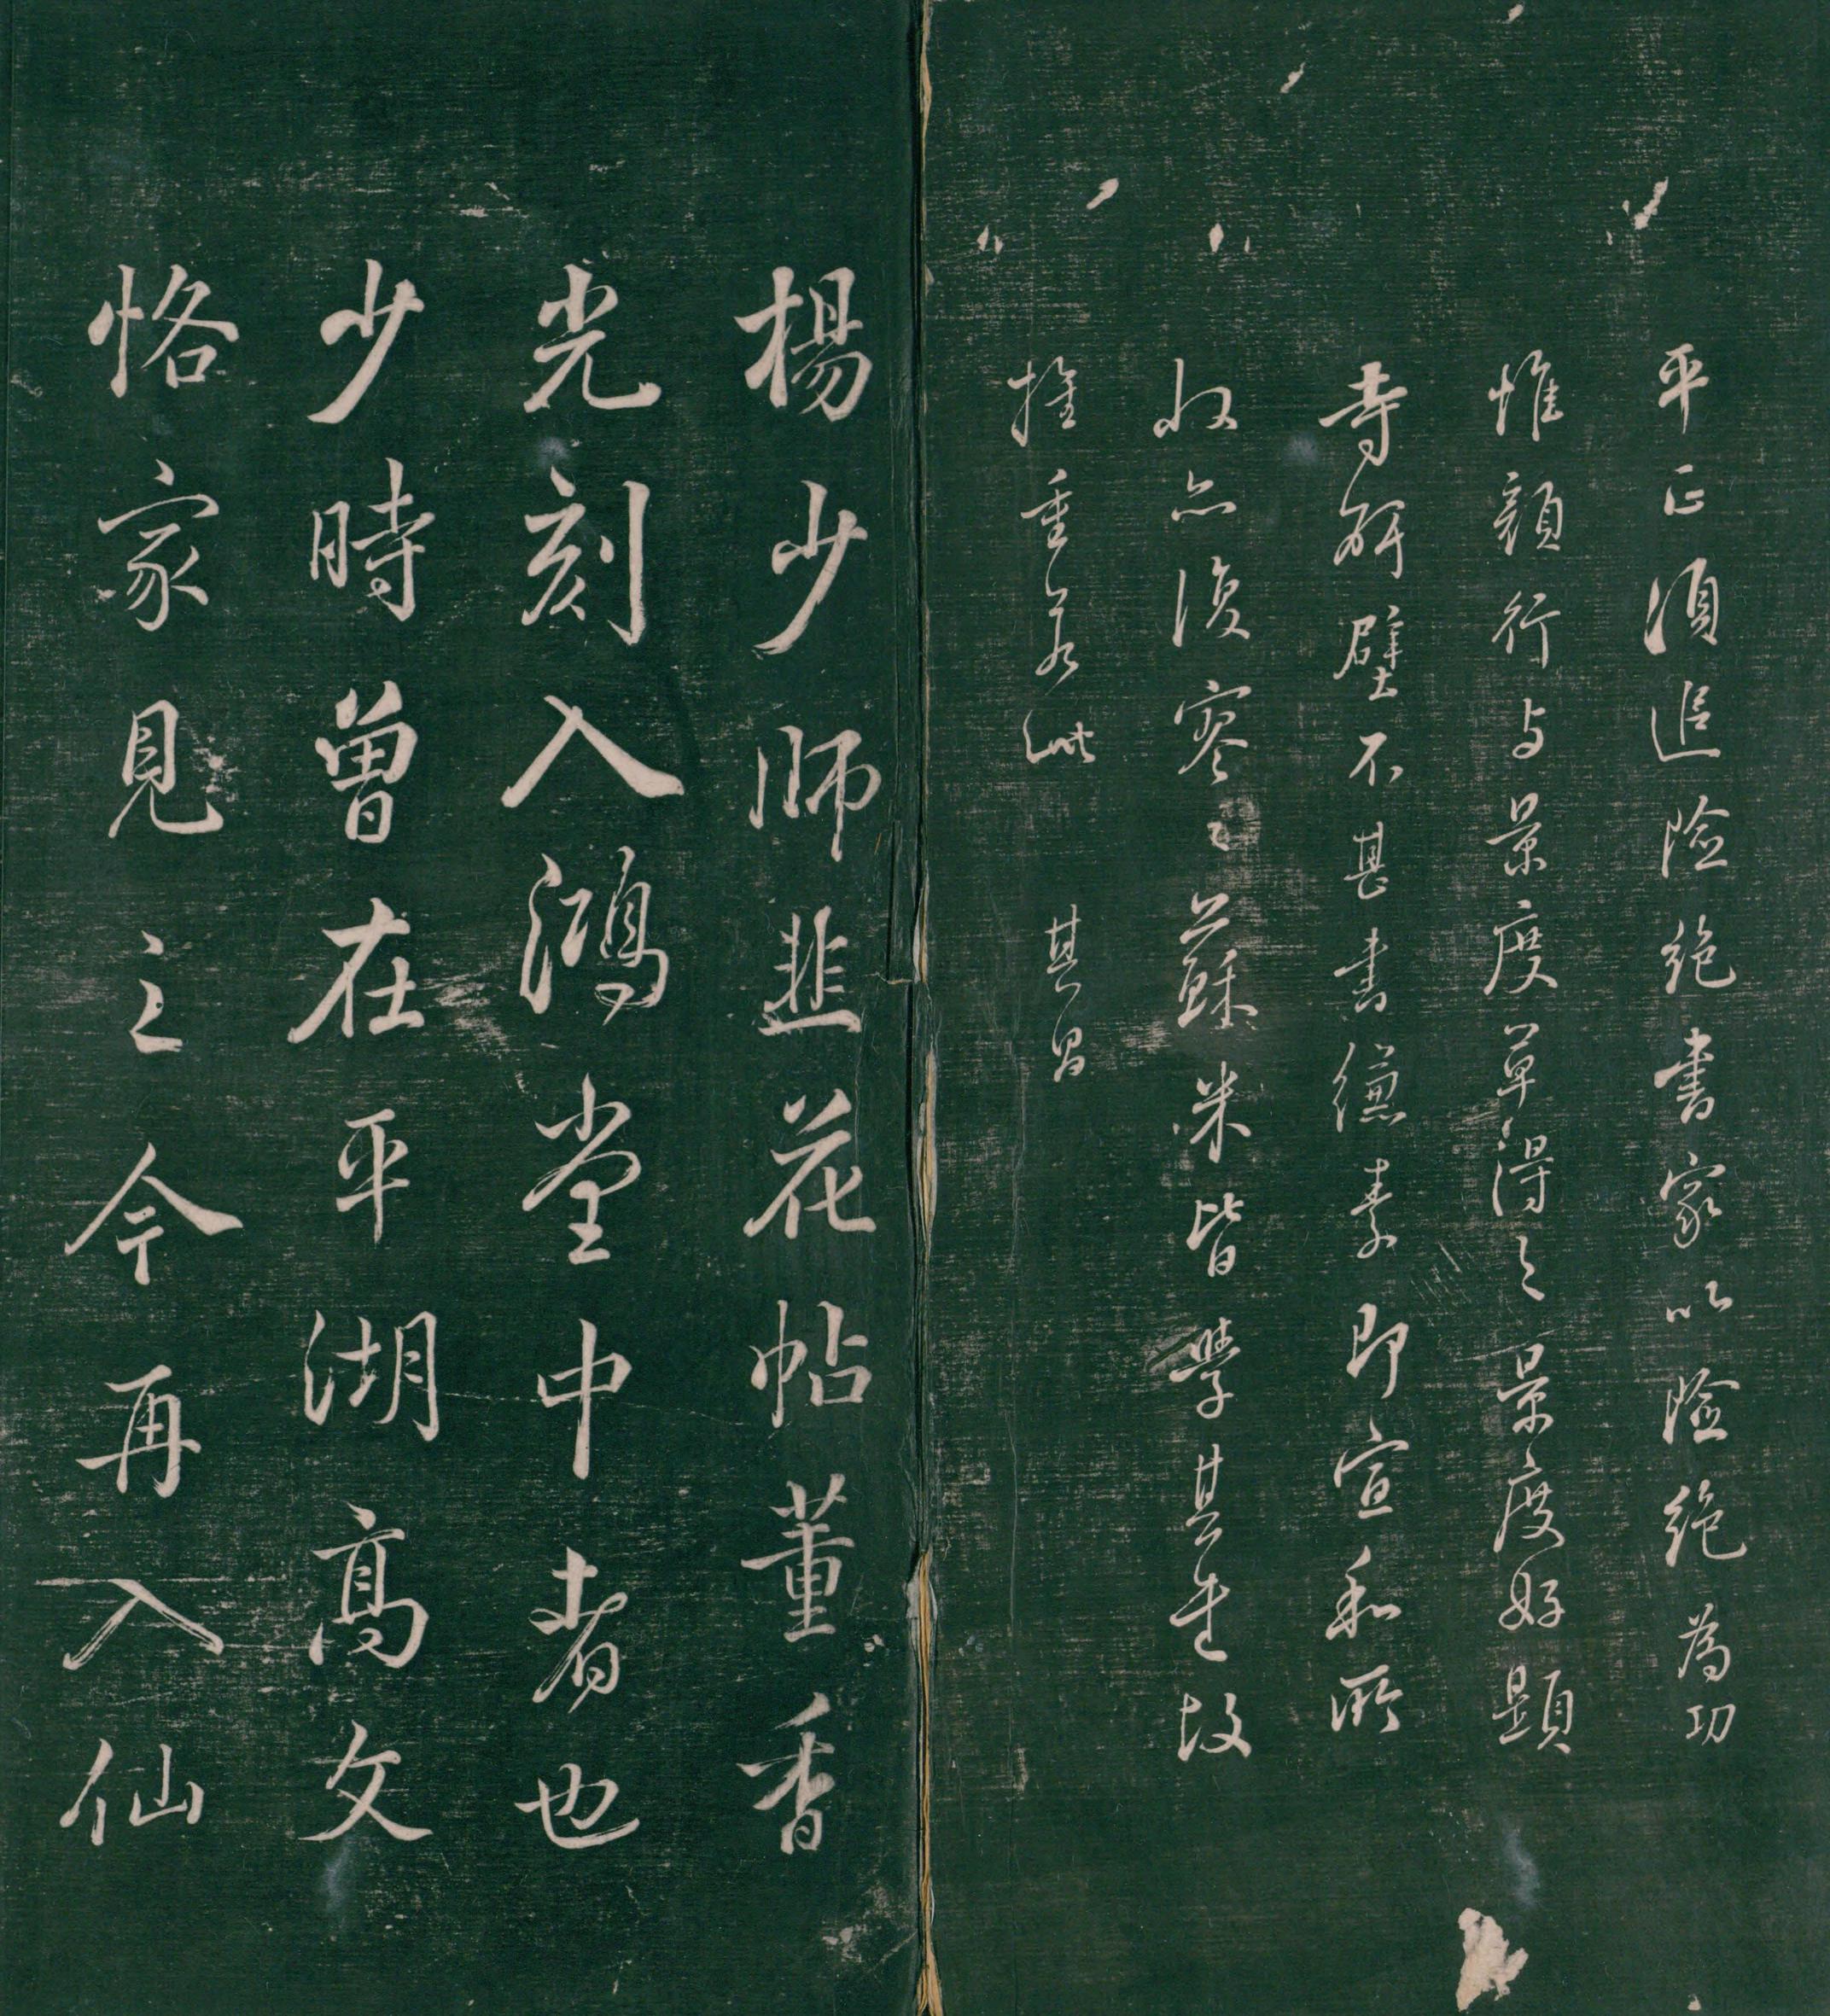 平正須追險絶書家以險絶為功
惟顔行与景度草得之景度好題
寺觧壁不甚書縑素即宣和所
收亦復寥〻蘇米皆學其書故
推重若此　其昌
楊少師韭花帖董香
光刻入鴻堂中者也
少時曾在平湖高文
恪家見之今再入仙